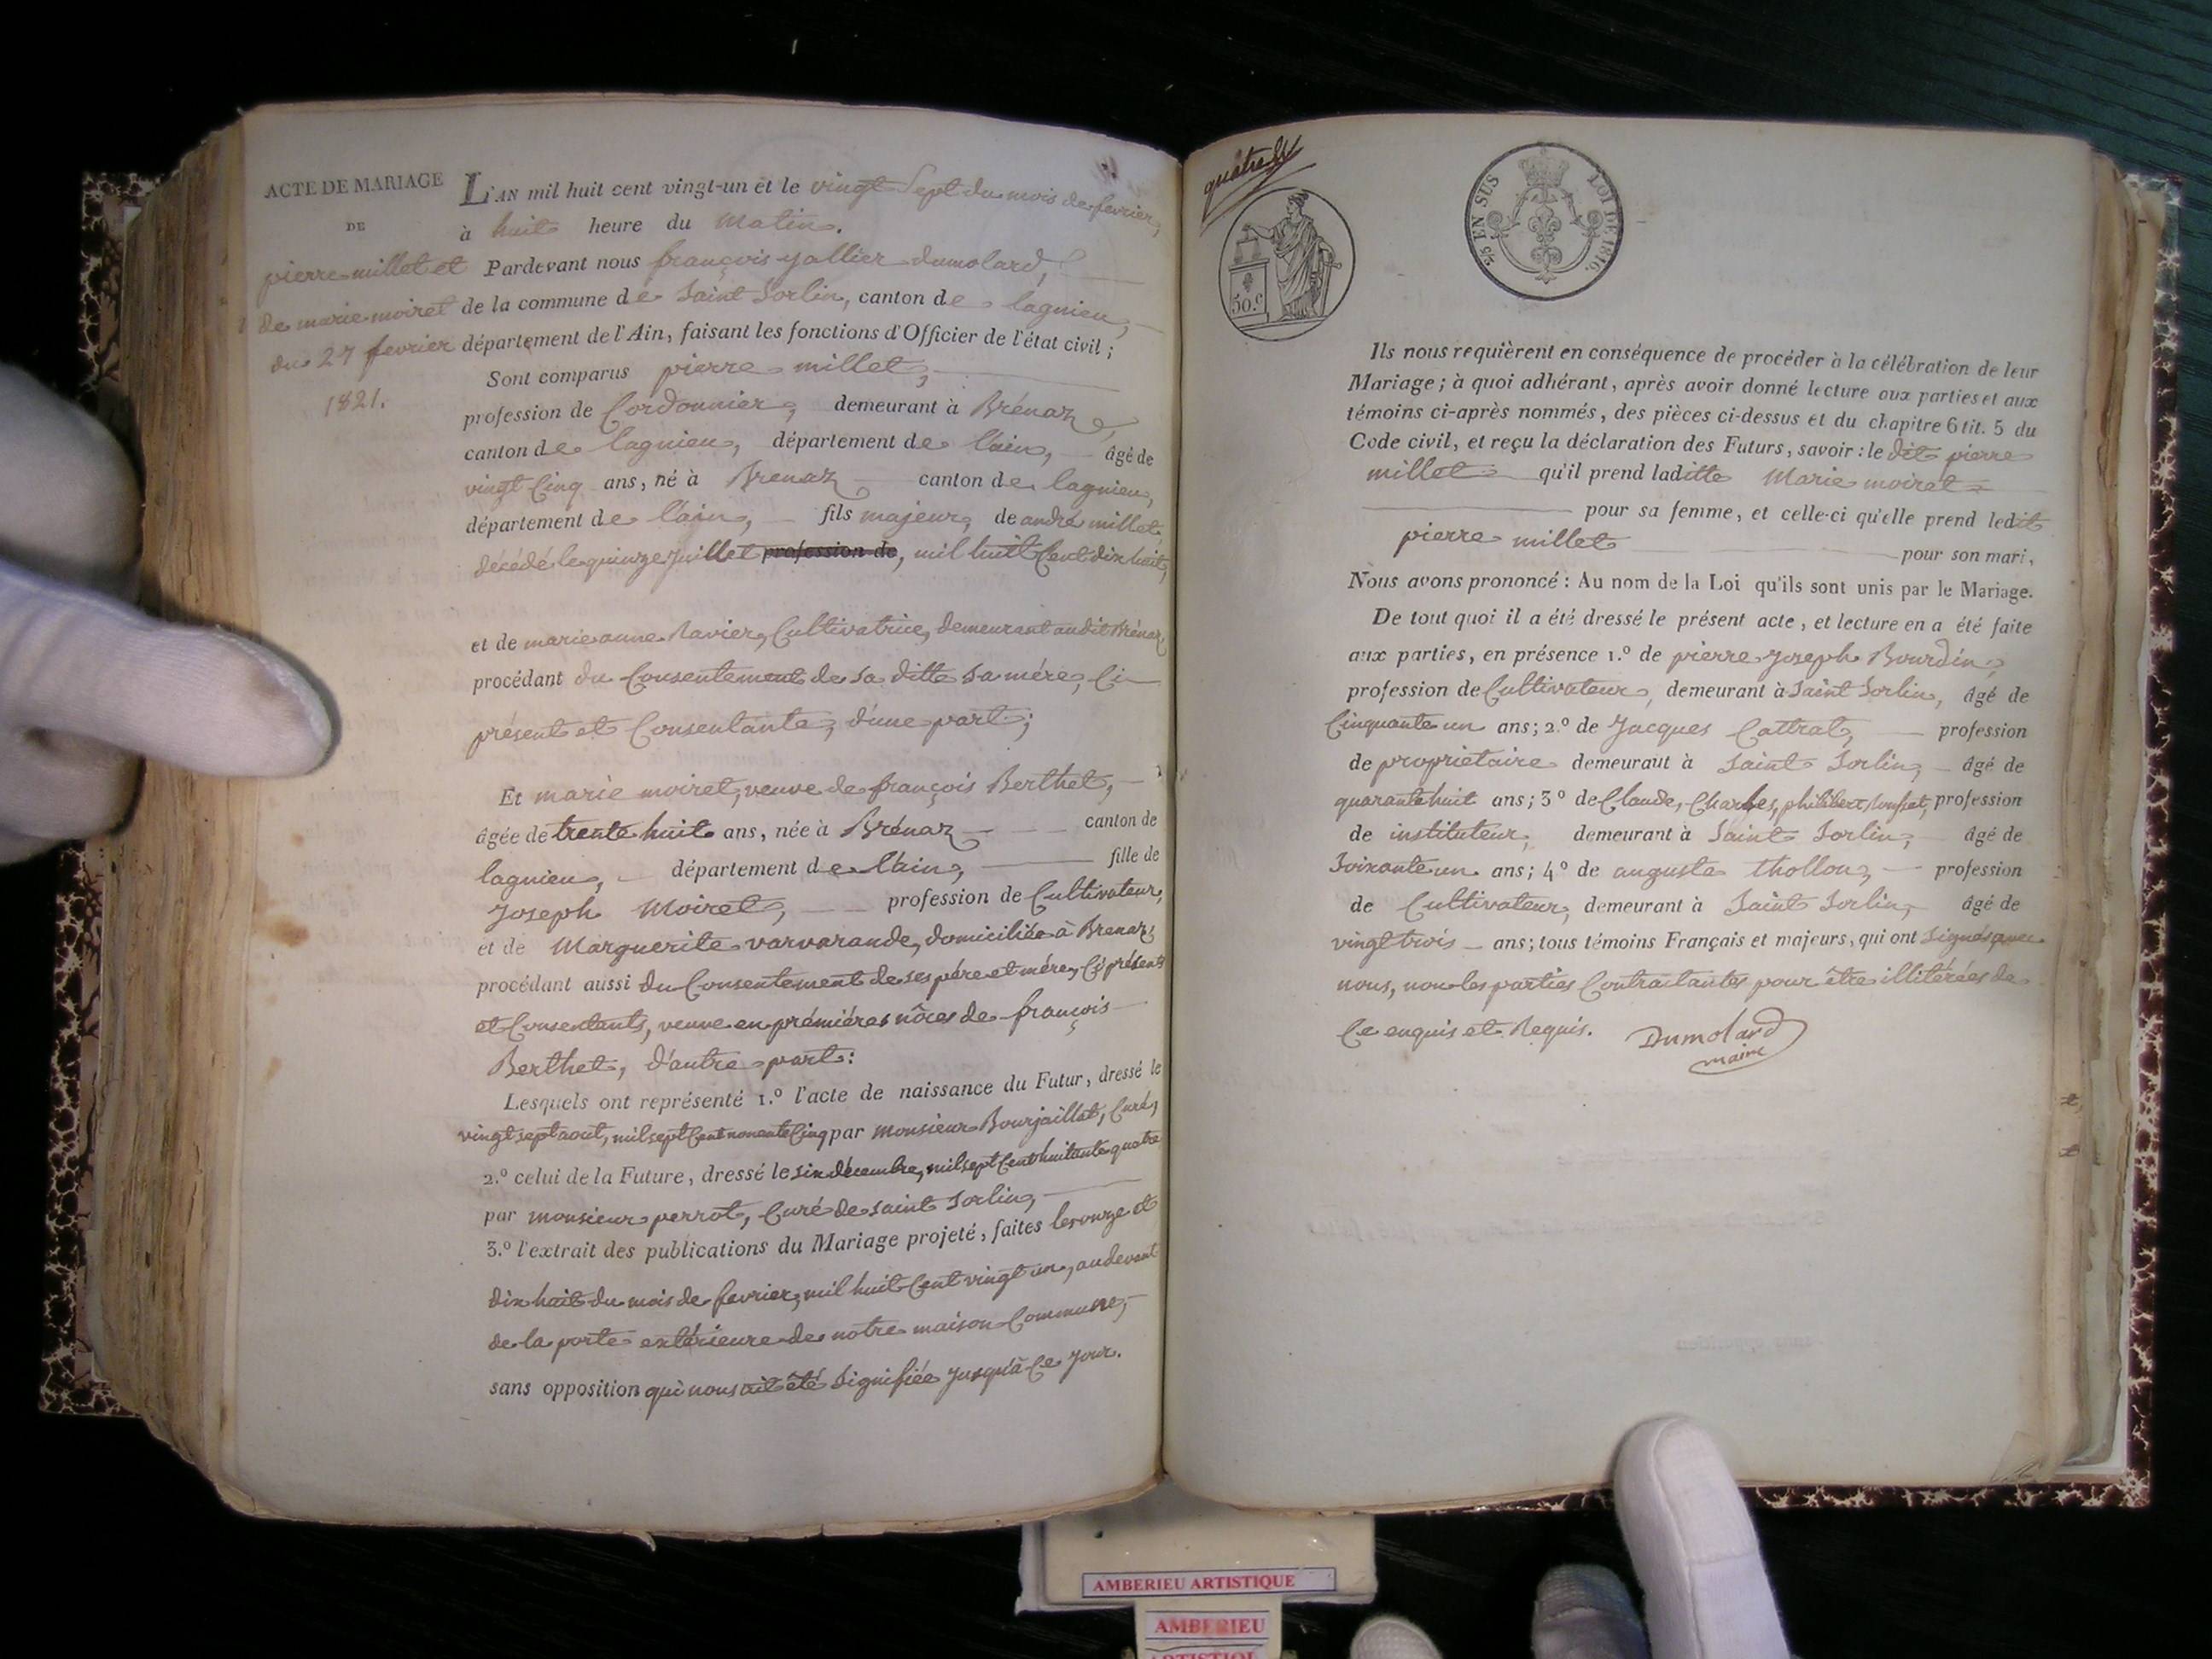 ACTE DE MARIAGE
DE
pierre millet et
de marie moiret
du 27 fevrier
1821.
L'AN mil huit cent vingt-un et le vingt Sept du mois de fevrier,
à huit heure du Matin.
Pardevant nous françois yallier dumolard,
de la commune de Saint Sorlin, canton de lagnieu,
département de l'Ain, faisant les fonctions d'Officier de l'état civil;
Sont comparus pierre millet,
profession de Cordonnier, demeurant à Brénaz,
canton de lagnieu, département de l'ain, âgé de
vingt Cinq ans, né à Brenaz canton de lagnieu,
département de l'ain, fils majeur, de andré millet
décédé le quinze Juillet profession de, mil huit Cent dix huit,
et de marie anne Ravier, Cultivatrice, demeurant audit Brénaz
procédant du Consentement de sa ditte sa mére, Ci
présent et Consentante, d'une part;
Et marie moiret, veuve de françois Berthet,
âgée de trente huit ans, née à Brénaz canton de
lagnieu, département de l'ain, fille de
Joseph Moiret, profession de Cultivateur,
et de Marguerite varvarande, domiciliée à Brenaz
procédant aussi du Consentement de ses pére et mére, Ci présents
et Consentants, veuve en prémiéres nôces de françois
Berthet, d'autre part:
Lesquels ont représenté 1.º l'acte de naissance du Futur, dressé le
vingt sept aout, mil sept Cent nonente Cinq par monsieur Bourjaillat, Curé,
2.º celui de la Future, dressé le six décembre, mil sept Cent huitante quatre
par monsieur perrot, Curé de saint Sorlin,
3.º l'extrait des publications du Mariage projeté, faites les onze et
dix huit du mois de fevrier, mil huit Cent vingt un, au devant
de la porte extérieure de notre maison Commune,
sans opposition qui nous ait été Signifiée Jusqu'à Ce Jour.
50.c
25 EN SUS LOI DE 1816.
Ils nous requièrent en conséquence de procéder à la célébration de leur
Mariage; à quoi adhérant, après avoir donné lecture aux parties et aux
témoins ci-après nommés, des pièces ci-dessus et du chapitre 6 tit. 5 du
Code civil, et reçu la déclaration des Futurs, savoir: le dit pierre
millet qu'il prend laditte Marie moiret
pour sa femme, et celle-ci qu'elle prend ledit
pierre millet pour son mari,
Nous avons prononcé: Au nom de la Loi qu'ils sont unis par le Mariage.
De tout quoi il a été dressé le présent acte, et lecture en a été faite
aux parties, en présence 1.º de pierre Joseph Bourdin,
profession de Cultivateur, demeurant à Saint Sorlin, âgé de
Cinquante un ans; 2.º de Jacques Cattrat, profession
de propriétaire demeurant à Saint Sorlin, âgé de
quarante huit ans; 3º de Claude, Charles, philibert, profession
de instituteur, demeurant à Saint Sorlin, âgé de
Soixante un ans; 4º de auguste thollon, profession
de Cultivateur, demeurant à Saint Sorlin, âgé de
vingt trois ans; tous témoins Français et majeurs, qui ont Signés avec
nous, non les parties Contractantes pour être illitérées de
Ce enquis et Requis. Dumolard
maire
AMBERIEU ARTISTIQUE
AMBERIEU
ARTISTIQUE